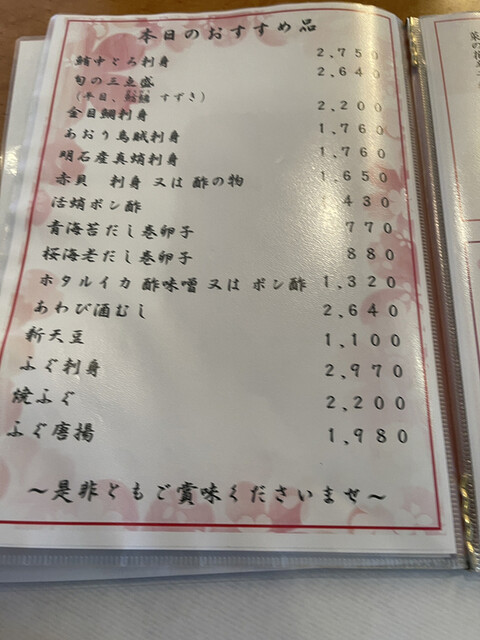 本日のおすすめ品
鮪中とろ刺身 2,750
旬の三点盛 2,640
(平目、 すずき)
金目鯛刺身 2,200
あおり烏賊刺身 1,760
明石産真蛸刺身 1,760
赤貝 刺身 又は 酢の物 1,650
活蛸ポン酢 430
青海苔だし巻卵子 770
桜海老だし巻卵子 880
ホタルイカ 酢味噌 又は ポン酢 1,320
あわび酒むし 2,640
新天豆 1,100
ふぐ刺身 2,970
焼ふぐ 2,200
ふぐ唐揚 1,980
〜是非ともご賞味くださいませ〜